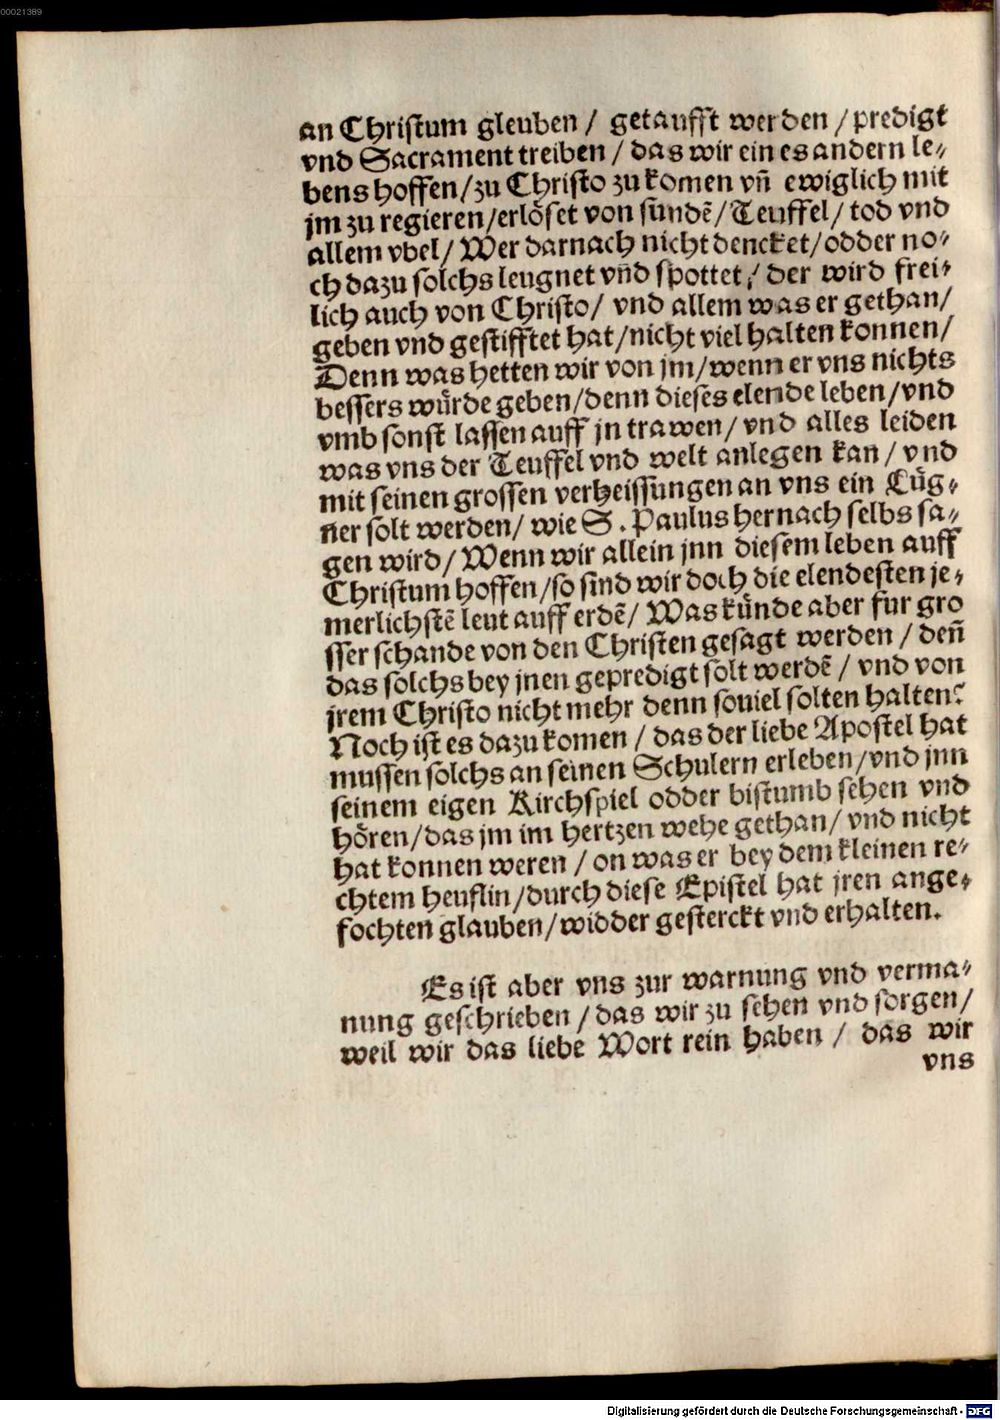 00021389
an Christum gleuben / getaufft werden / predigt
vnd Sacrament treiben / das wir ein es andern le⸗
bens hoffen / zu Christo zu komen vñ ewiglich mit
jm zu regieren / erlöset von sündẽ / Teuffel / tod vnd
allem vbel / Wer darnach nicht dencket / odder no⸗
ch dazu solchs leugnet vñd spottet / der wird frei⸗
lich auch von Christo / vnd allem was er gethan /
geben vnd gestifftet hat / nicht viel halten konnen /
Denn was hetten wir von jm / wenn er vns nichts
bessers würde geben / denn dieses elende leben / vnd
vmb sonst lassen auff jn trawen / vnd alles leiden
was vns der Teuffel vnd welt anlegen kan / vnd
mit seinen grossen verheissungen an vns ein Lüg⸗
ner solt werden / wie S. Paulus hernach selbs sa⸗
gen wird / Wenn wir allein jnn diesem leben auff
Christum hoffen / so sind wir doch die elendesten je⸗
merlichstẽ leut auff erdẽ / Was künde aber fur gro
sser schande von den Christen gesagt werden / deñ
das solchs bey jnen gepredigt solt werdẽ / vnd von
jrem Christo nicht mehr denn souiel solten halten?
Noch ist es dazu komen / das der liebe Apostel hat
mussen solchs an seinen Schulern erleben / vnd jnn
seinem eigen Kirchspiel odder bistumb sehen vnd
hören / das jm im hertzen wehe gethan / vnd nicht
hat konnen weren / on was er bey dem kleinen re⸗
chtem heuflin / durch diese Epistel hat jren ange⸗
fochten glauben / widder gesterckt vnd erhalten.
Es ist aber vns zur warnung vnd verma⸗
nung geschrieben / das wir zu sehen vnd sorgen /
weil wir das liebe Wort rein haben / das wir
vns
Digitalisierung gefördert durch die Deutsche Forschungsgemeinschaft - DFG